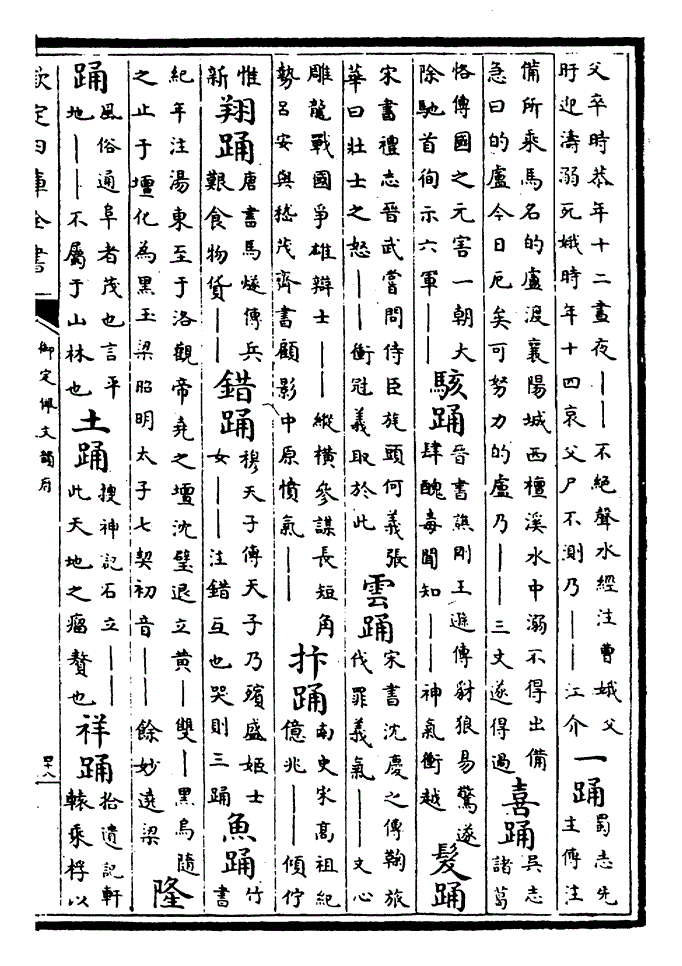 父卒時恭年十二晝夜——不絕聲水經注曹娥父
盱迎濤溺死娥時年十四哀父尸不測乃——江介
一踊
蜀志先
主傳注
備所乘馬名的盧渡襄陽城西檀溪水中溺不得出備
急曰的盧今日厄矣可努力的盧乃——三丈遂得過
喜踊
吳志
諸葛
恪傳國之元害一朝大
除馳首徇示六軍——
駭踊
晉書譙剛王遜傳豺狼易驚遂
肆醜毒聞知——神氣衝越
髮踊
宋書禮志晉武嘗問侍臣旄頭何義張
華曰壯士之怒——衝冠義取於此
雲踊
宋書沈慶之傳鞠旅
伐罪義氣——文心
雕龍戰國爭雄辯士——縱橫參謀長短角
勢呂安與嵇茂齊書顧影中原憤氣——
抃踊
南史宋高祖紀
億兆——傾佇
惟
新
翔踊
唐書馬燧傳兵
艱食物貨——
錯踊
穆天子傳天子乃殯盛姬士
女——注錯互也哭則三踊
魚踊
竹
書
紀年注湯東至于洛觀帝堯之壇沈璧退立黃—雙—黑鳥隨
之止于壇化為黑玉梁昭明太子七契初音——餘妙遠梁
隆
踊
風俗通阜者茂也言平
地——不屬于山林也
土踊
搜神記石立——
此天地之瘤贅也
祥踊
拾遺記軒
轅乘桴以
欽定四庫全書
御定佩文韻府
四十八